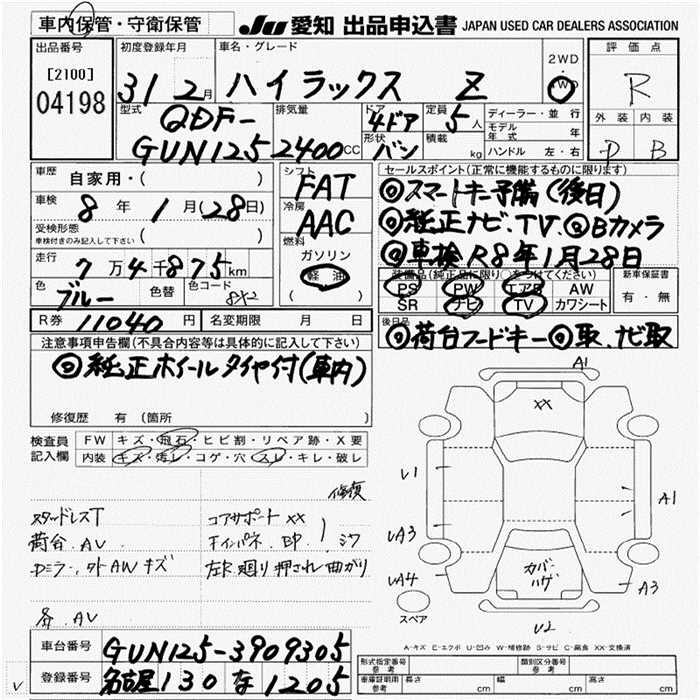 車内保管・守衛保管
JU 愛知 出品申込書 JAPAN USED CAR DEALERS ASSOCIATION
出品番号
[2100]
04198
初度登録年月
31 2月
車名・グレード
ハイラックス Z
2WD
4WD
評価点
R
外装 内装
P B
型式
QDF-
GUN125
排気量
2400CC
ドア
4ドア
形状
バン
定員
5人
積載
kg
ディーラー・並行
モデル年式 年
ハンドル 左・右
車歴
自家用・( )
車検
8年 1月(28日)
受検形態
車検付きのみ記入して下さい ( )
走行
7万4千875km
色
ブルー
色替
色コード
8X2
シフト
FAT
冷房
AAC
燃料
ガソリン
軽油
セールスポイント(正常に機能するものに限ります)
◎スマートキー予備(後日)
◎純正ナビ.TV.◎Bカメラ
◎車検R8年1月28日
装備品(純正品に限り○をつけてください)
PS PW エアB AW
SR ナビ TV カワシート
新車保証書
有・無
R券 11040円
名変期限 月 日
後日品
◎荷台フードキー◎取.ナビ取
注意事項申告欄(不具合内容等は具体的に記入して下さい)
◎純正ホイールタイヤ付(車内)
修復歴 有(箇所
検査員記入欄
FW キズ・飛石・ヒビ割・リペア跡・X要
内装 キズ・汚レ・コゲ・穴・スレ・キレ・破レ
修復
スタッドレスT
荷台.AV
Dミラー.外AWキズ
各.AV
コアサポートXX
左F廻り押され曲がり
A1
XX
U1
A1
UA3
UA4
カバー
ハゲ
A3
U2
スペア
A-キズ E-エクボ U-凹み W-補修跡 S-サビ C-腐食 XX-交換済
車台番号 GUN125-3909305
登録番号 名古屋130な1205
形式指定番号
参考
類別区分番号
参考
車庫証明用
参考
長さ cm 幅 cm 高さ cm
V